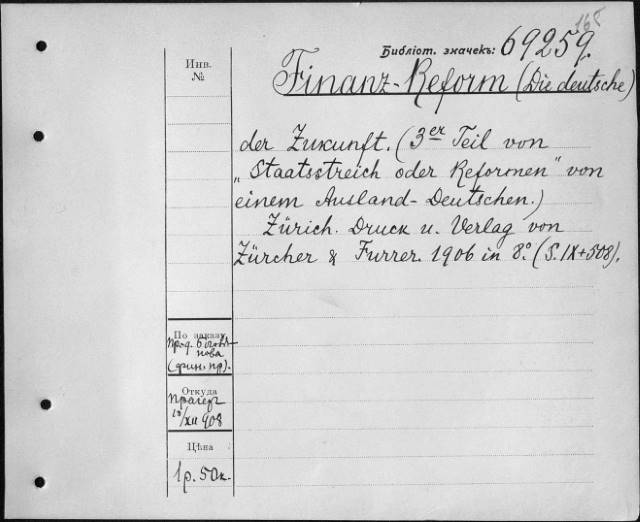 168
Библіот. значекъ: 69259.
Инв.
№
Finanz-Reform (Die deutsche)
der Zukunft. (3er Teil von
„Staatsstreich oder Reformen" von
einem Ausland-Deutschen.)
Zürich. Druck u. Verlag von
Zürcher & Furrer. 1906 in 8°. (S. IX+508).
По заказу
проф. Боголѣ-
пова
(фин. пр).
Откуда
Прагеръ
/XII 908
Цѣна
1 р. 50 к.